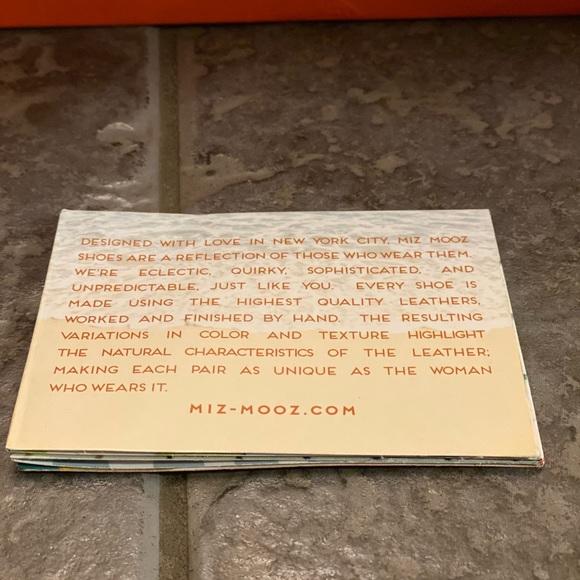 DESIGNED WITH LOVE IN NEW YORK CITY, MIZ MOOZ
SHOES ARE A REFLECTION OF THOSE WHO WEAR THEM.
WE'RE ECLECTIC, QUIRKY, SOPHISTICATED, AND
UNPREDICTABLE, JUST LIKE YOU. EVERY SHOE IS
MADE USING THE HIGHEST QUALITY LEATHERS,
WORKED AND FINISHED BY HAND. THE RESULTING
VARIATIONS IN COLOR AND TEXTURE HIGHLIGHT
THE NATURAL CHARACTERISTICS OF THE LEATHER;
MAKING EACH PAIR AS UNIQUE AS THE WOMAN
WHO WEARS IT.
MIZ-MOOZ.COM